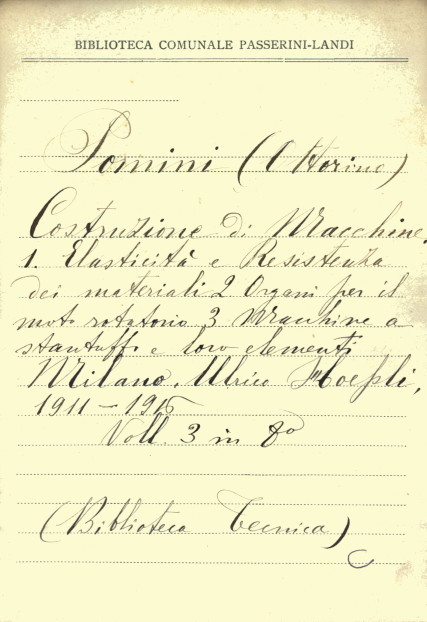 BIBLIOTECA COMUNALE PASSERINI-LANDI
Pomini (Ottorino)
Costruzione di Macchine.
1. Elasticità e Resistenza
dei materiali 2 Organi per il
moto rotatorio 3 Macchine a
stantuffo e loro elementi
Milano, Ulrico Hoepli,
1911-1916
Voll. 3 in 8º
(Biblioteca Tecnica)